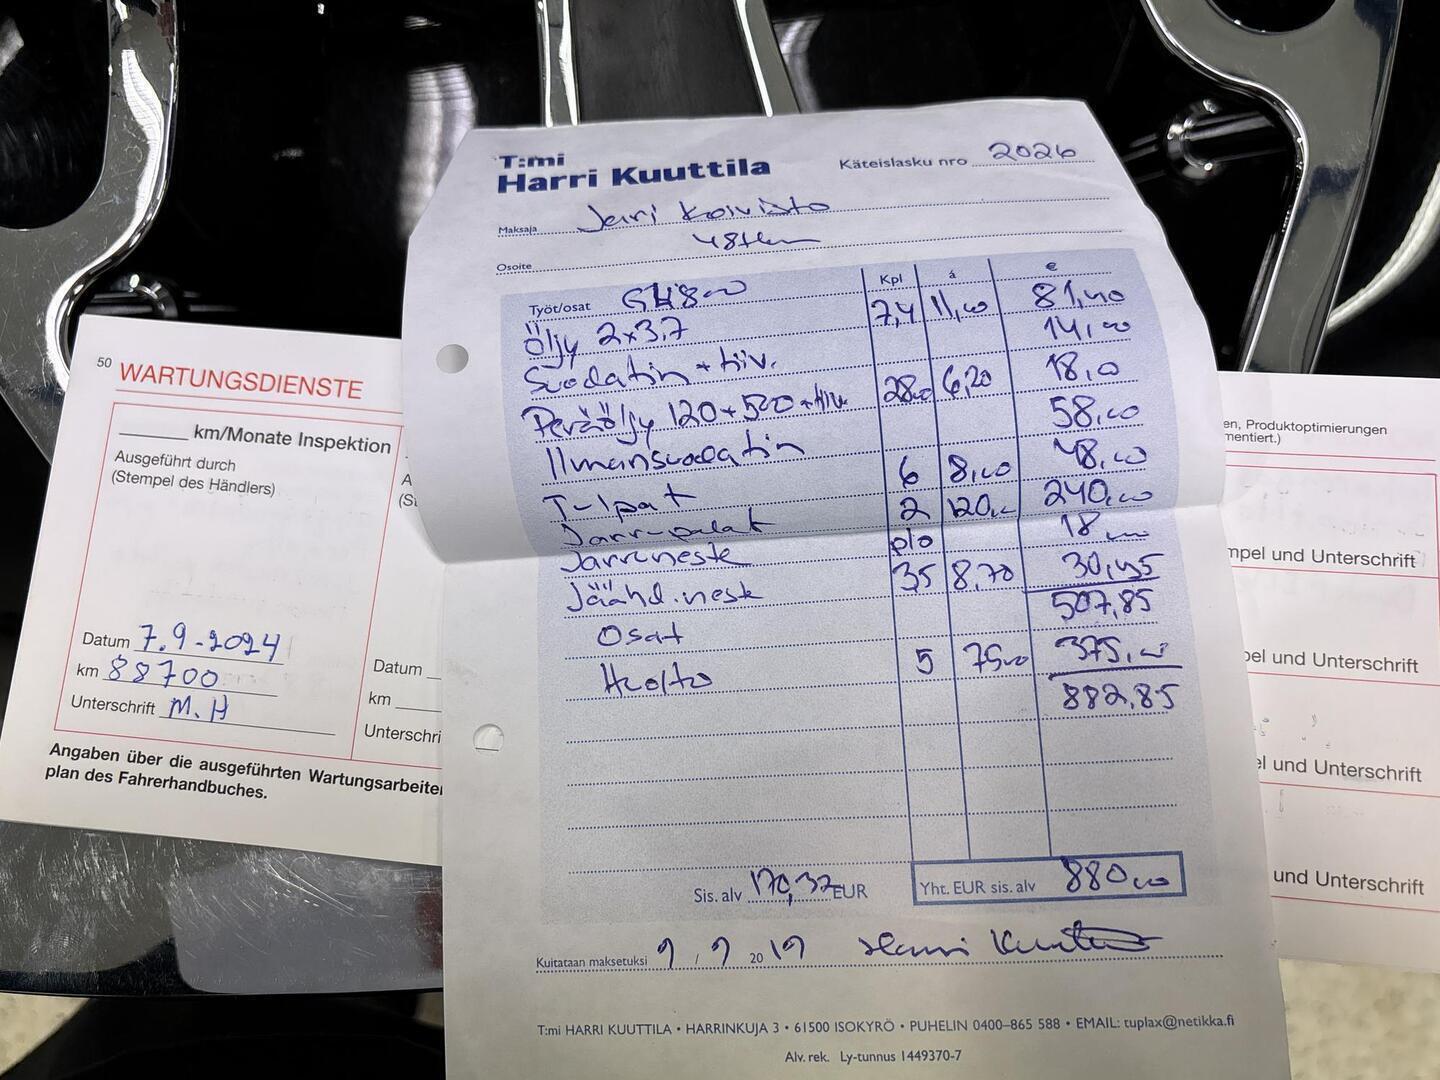 T:mi
Harri Kuuttila
Käteislasku nro 2026
Maksaja Jari Koivisto
Osoite 48tkm
Työt/osat GL1800 Kpl á €
Öljy 2x3,7 7,4 11,00 81,40
Suodatin + tiiv. 14,00
Peräöljy 120+500+tiiv. 18,0
Ilmansuodatin 58,00
T-lpat 6 8,00 48,00
Jarrupalat 2 120,00 240,00
Jarruneste plo 18,00
Jäähd.neste 3,5 8,70 30,45
Osat 507,85
Huolto 5 75,00 375,00
882,85
Sis. alv 170,32 EUR
Yht. EUR sis. alv 880,00
Kuitataan maksetuksi 9 / 9 20 19 Harri Kuuttila
T:mi HARRI KUUTTILA • HARRINKUJA 3 • 61500 ISOKYRÖ • PUHELIN 0400–865 588 • EMAIL: tuplax@netikka.fi
Alv. rek. Ly-tunnus 1449370-7
50 WARTUNGSDIENSTE
km/Monate Inspektion
Ausgeführt durch
(Stempel des Händlers)
Datum 7.9-2024
km 88700
Unterschrift M.H
Angaben über die ausgeführten Wartungsarbeiten
plan des Fahrerhandbuches.
A
(St
Datum
km
Unterschri
en, Produktoptimierungen
mentiert.)
mpel und Unterschrift
pel und Unterschrift
el und Unterschrift
und Unterschrift